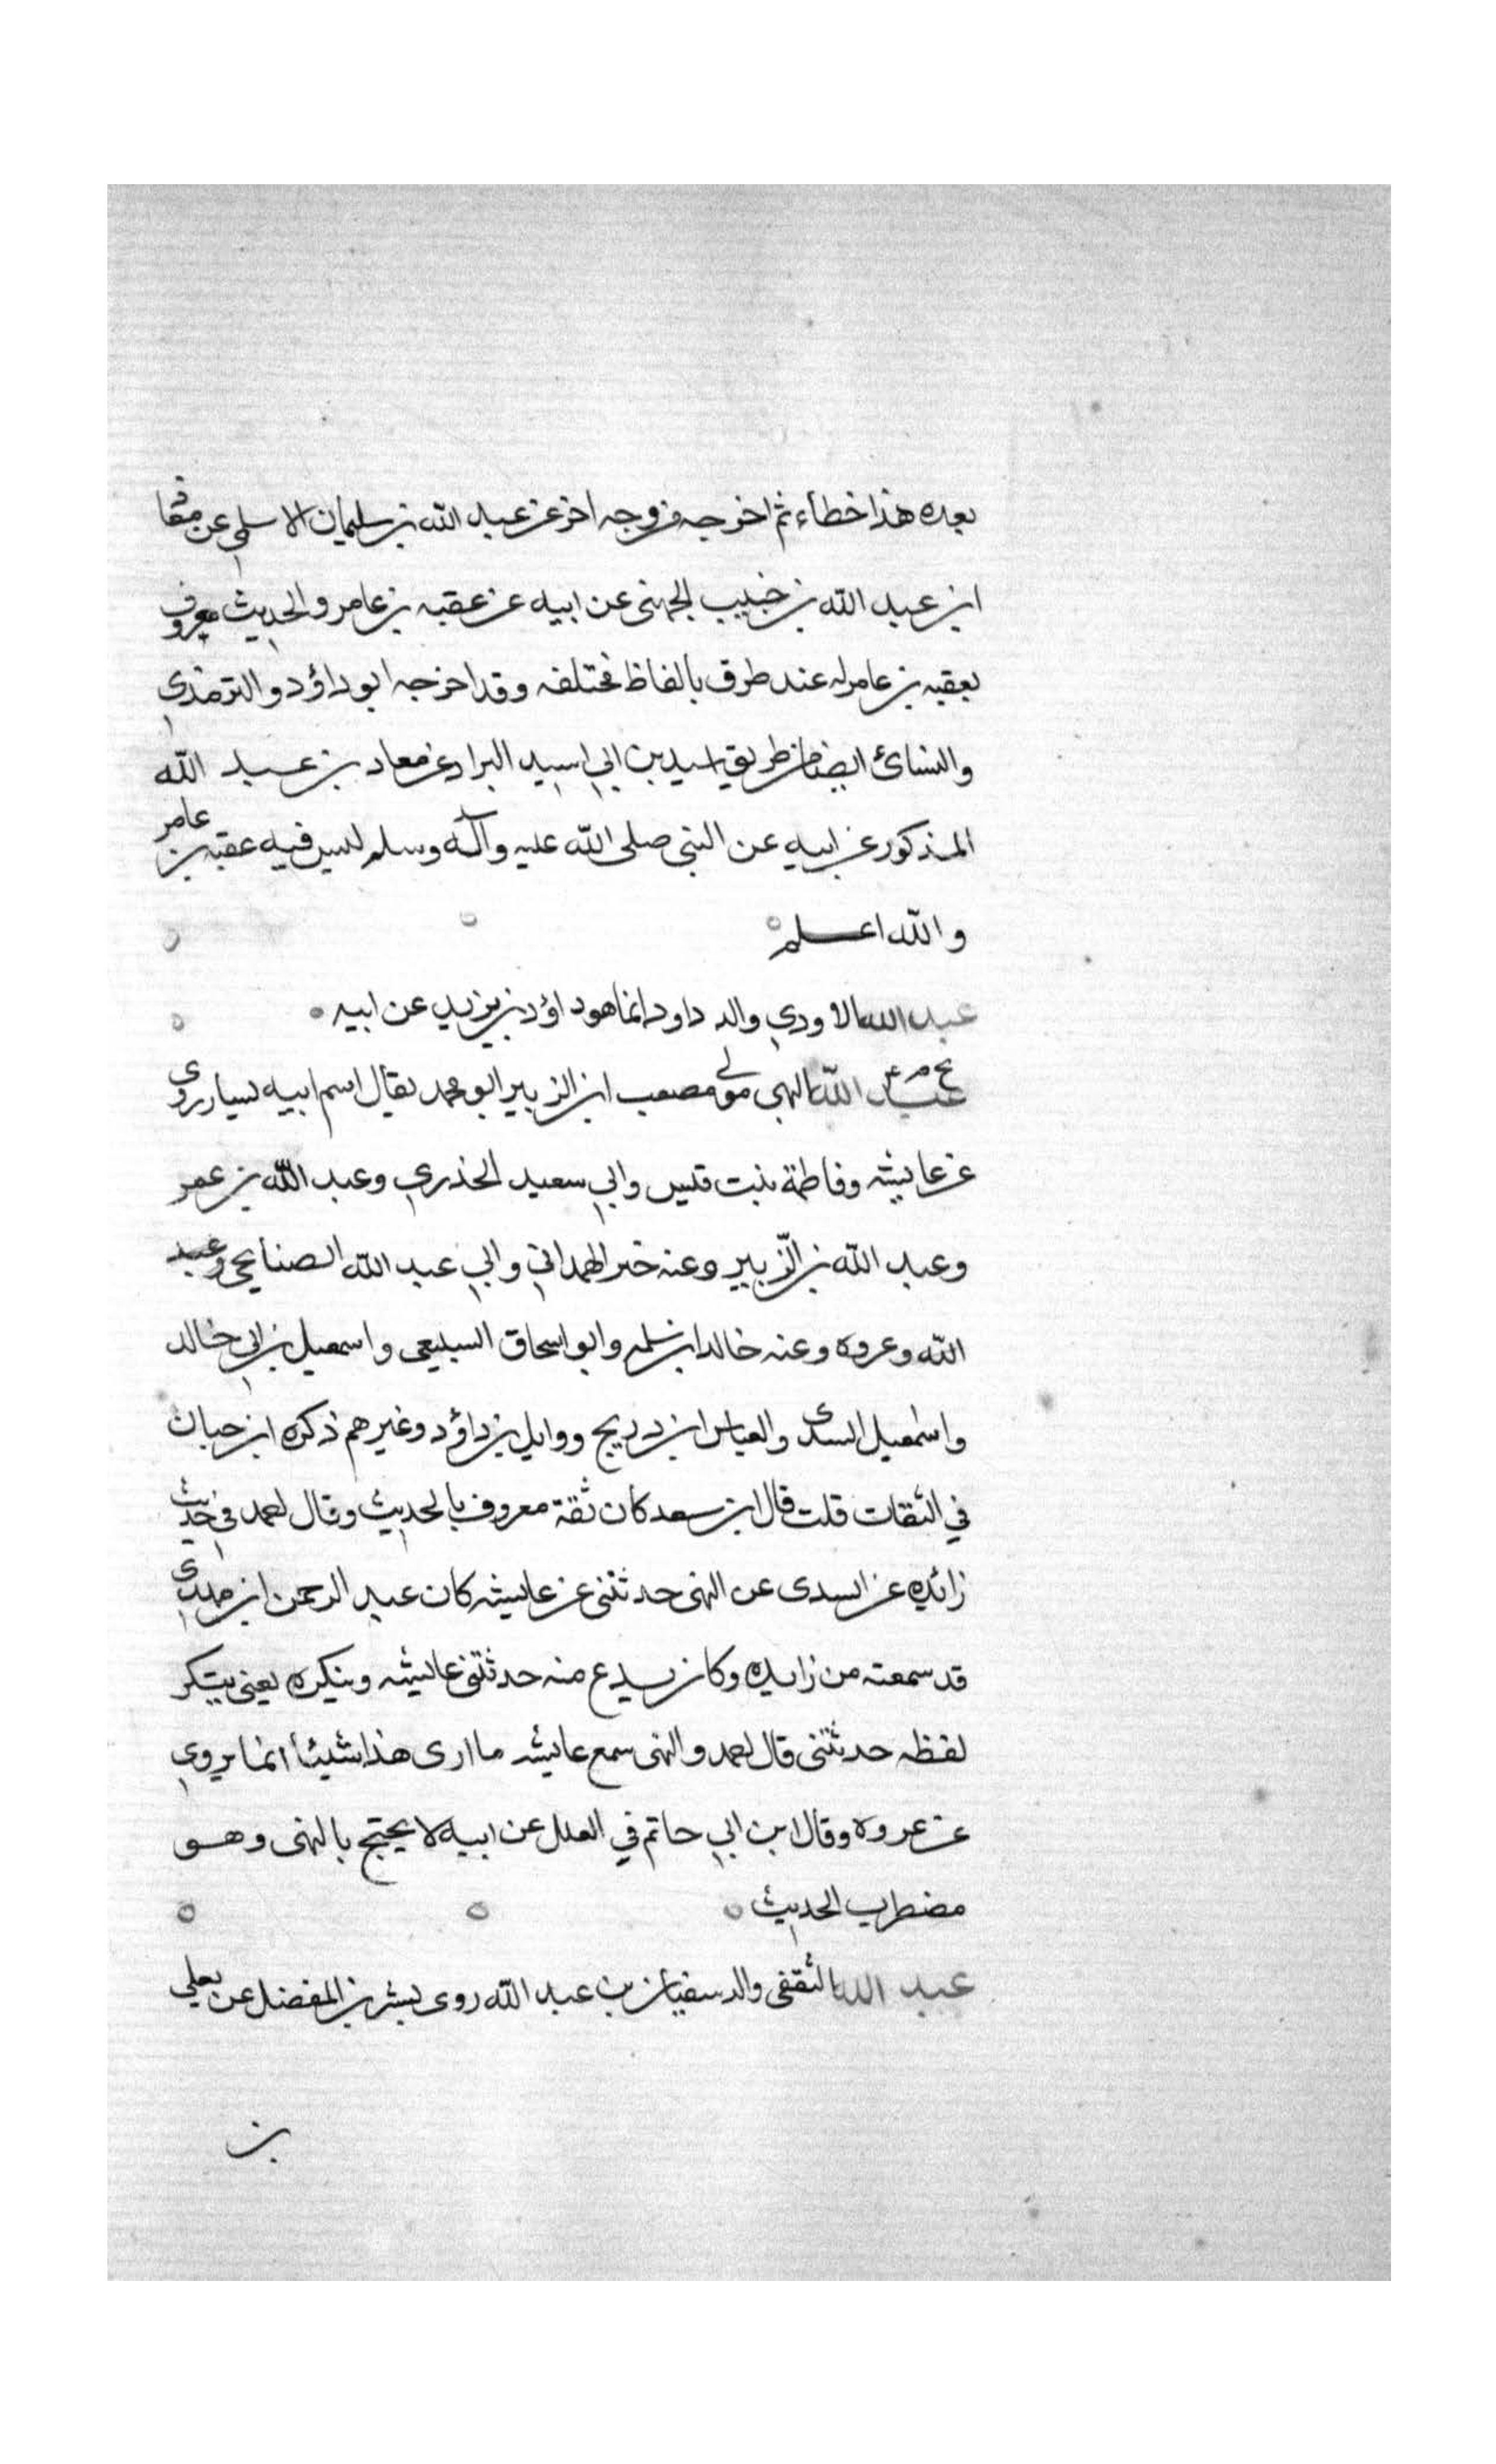 بعده هذا خطاء ثم اخرجه من وجه اخر عن عبد الله بن سليمان الاسلمي عن معا
ابن عبد الله بن خبيب الجهنى عن ابيه عن عقبه بن عامر والحديث معروف
بعقبه بن عامر له عنه طرق بالفاظ مختلفه وقد اخرجه ابو داؤد والترمذي
والنسائ ايضا من طريق اسيد بن ابي اسيد البراد عن معاد بن عبد الله
المذكور عن ابيه عن النبى صلى الله عليه وآله وسلم ليس فيه عقبه بن عامر
والله اعلم
عبد الله الاودي والد داود انما هو داؤد بن يزيد عن ابيه
بخ م ٤
عبد الله البهي مولى مصعب ابن الزبير ابو محمد يقال اسم ابيه يسار روى
عن عايشه وفاطمة بنت قيس وابي سعيد الخذري وعبد الله بن عمر
وعبد الله بن الزبير وعنه خير الهمداني وابي عبد الله الصنابحي وعبد
الله وعروه وعنه خالد ابن سلمه وابو اسحاق السبيعى واسمعيل بن ابي خالد
واسمعيل السدى والعباس ابن دريج ووايل بن داؤد وغيرهم ذكره ابن حبان
في الثقات قلت قال ابن سعد كان ثقة معروف بالحديث وقال احمد في حديث
زائده عن السدى عن البهى حدثتنى عن عايشه كان عبد الرحمن ابن مهدى
قد سمعته من زايده وكان يدع منه حدثتنى عايشه وينكره يعنى يتنكر
لفظه حدثتنى قال احمد والبهى سمع عايشه ما ارى هذا شيئا انما يروي
عن عروه وقال ابن ابي حاتم في العلل عن ابيه لا يحتج بالبهى وهو
مضطرب الحديث
عبد الله الثقفى والد سفيان بن عبد الله روى بشر بن المفضل عن يعلي
بن